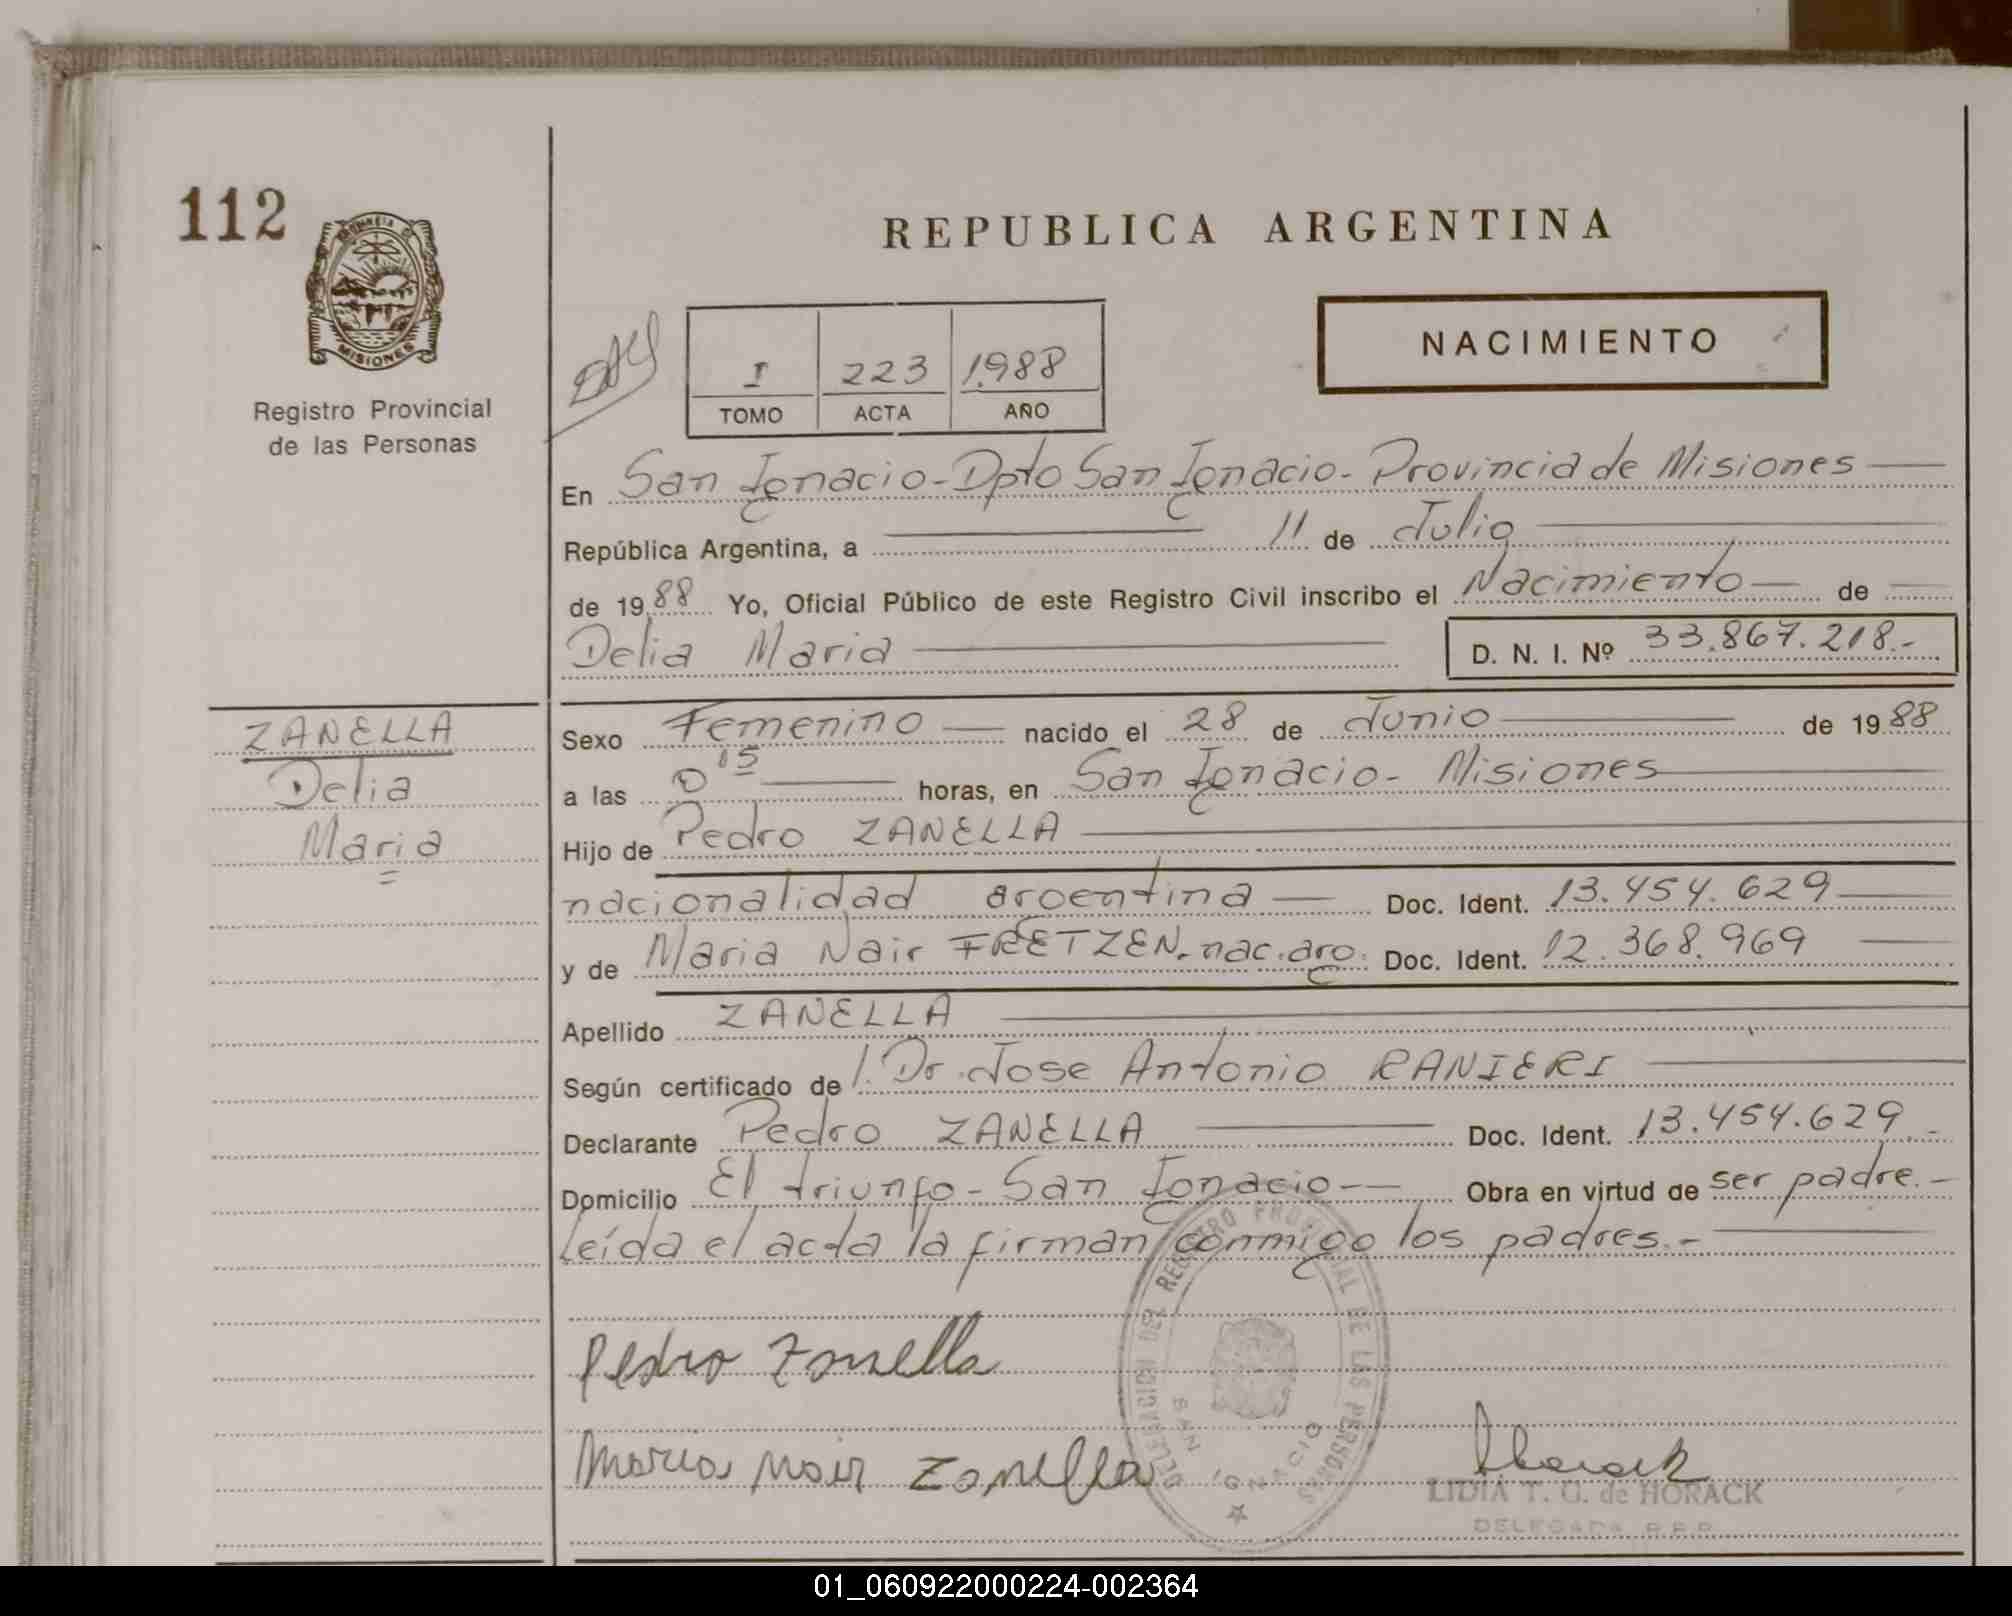 112
PROVINCIA D
MISIONES
Registro Provincial
de las Personas
REPUBLICA ARGENTINA
I 223 1988
TOMO ACTA AÑO
NACIMIENTO
En San Ignacio - Dpto San Ignacio - Provincia de Misiones
República Argentina, a 11 de Julio
de 1988 Yo, Oficial Público de este Registro Civil inscribo el Nacimiento de
Delia Maria D. N. I. Nº 33.867.218.-
ZANELLA
Delia
Maria
Sexo Femenino nacido el 28 de Junio de 1988
a las 0 15 horas, en San Ignacio - Misiones
Hijo de Pedro ZANELLA
nacionalidad argentina Doc. Ident. 13.454.629
y de Maria Nair FRETZEN. nac. arg. Doc. Ident. 12.368.969
Apellido ZANELLA
Según certificado de l. Dr. Jose Antonio RANIERI
Declarante Pedro ZANELLA Doc. Ident. 13.454.629.-
Domicilio El triunfo - San Ignacio -- Obra en virtud de ser padre.-
Leída el acta la firman conmigo los padres.-
DELEGACION DEL REGISTRO PROVINCIAL DE LAS PERSONAS
SAN IGNACIO
Pedro Zanella
Maria Nair Zanella
Horack
LIDIA T. G. de HORACK
DELEGADA R.P.P.
01_060922000224-002364